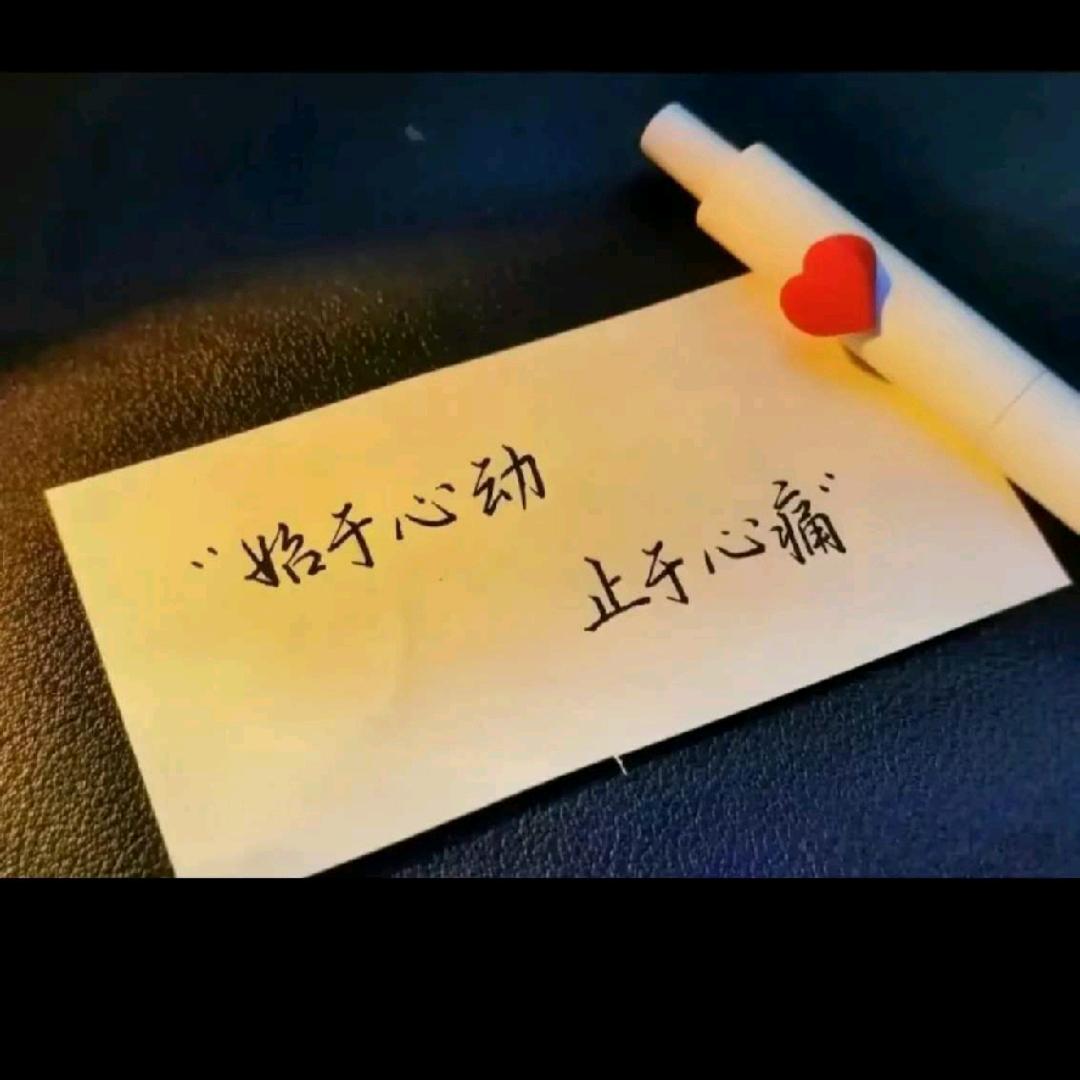 “始于心动
止于心痛”